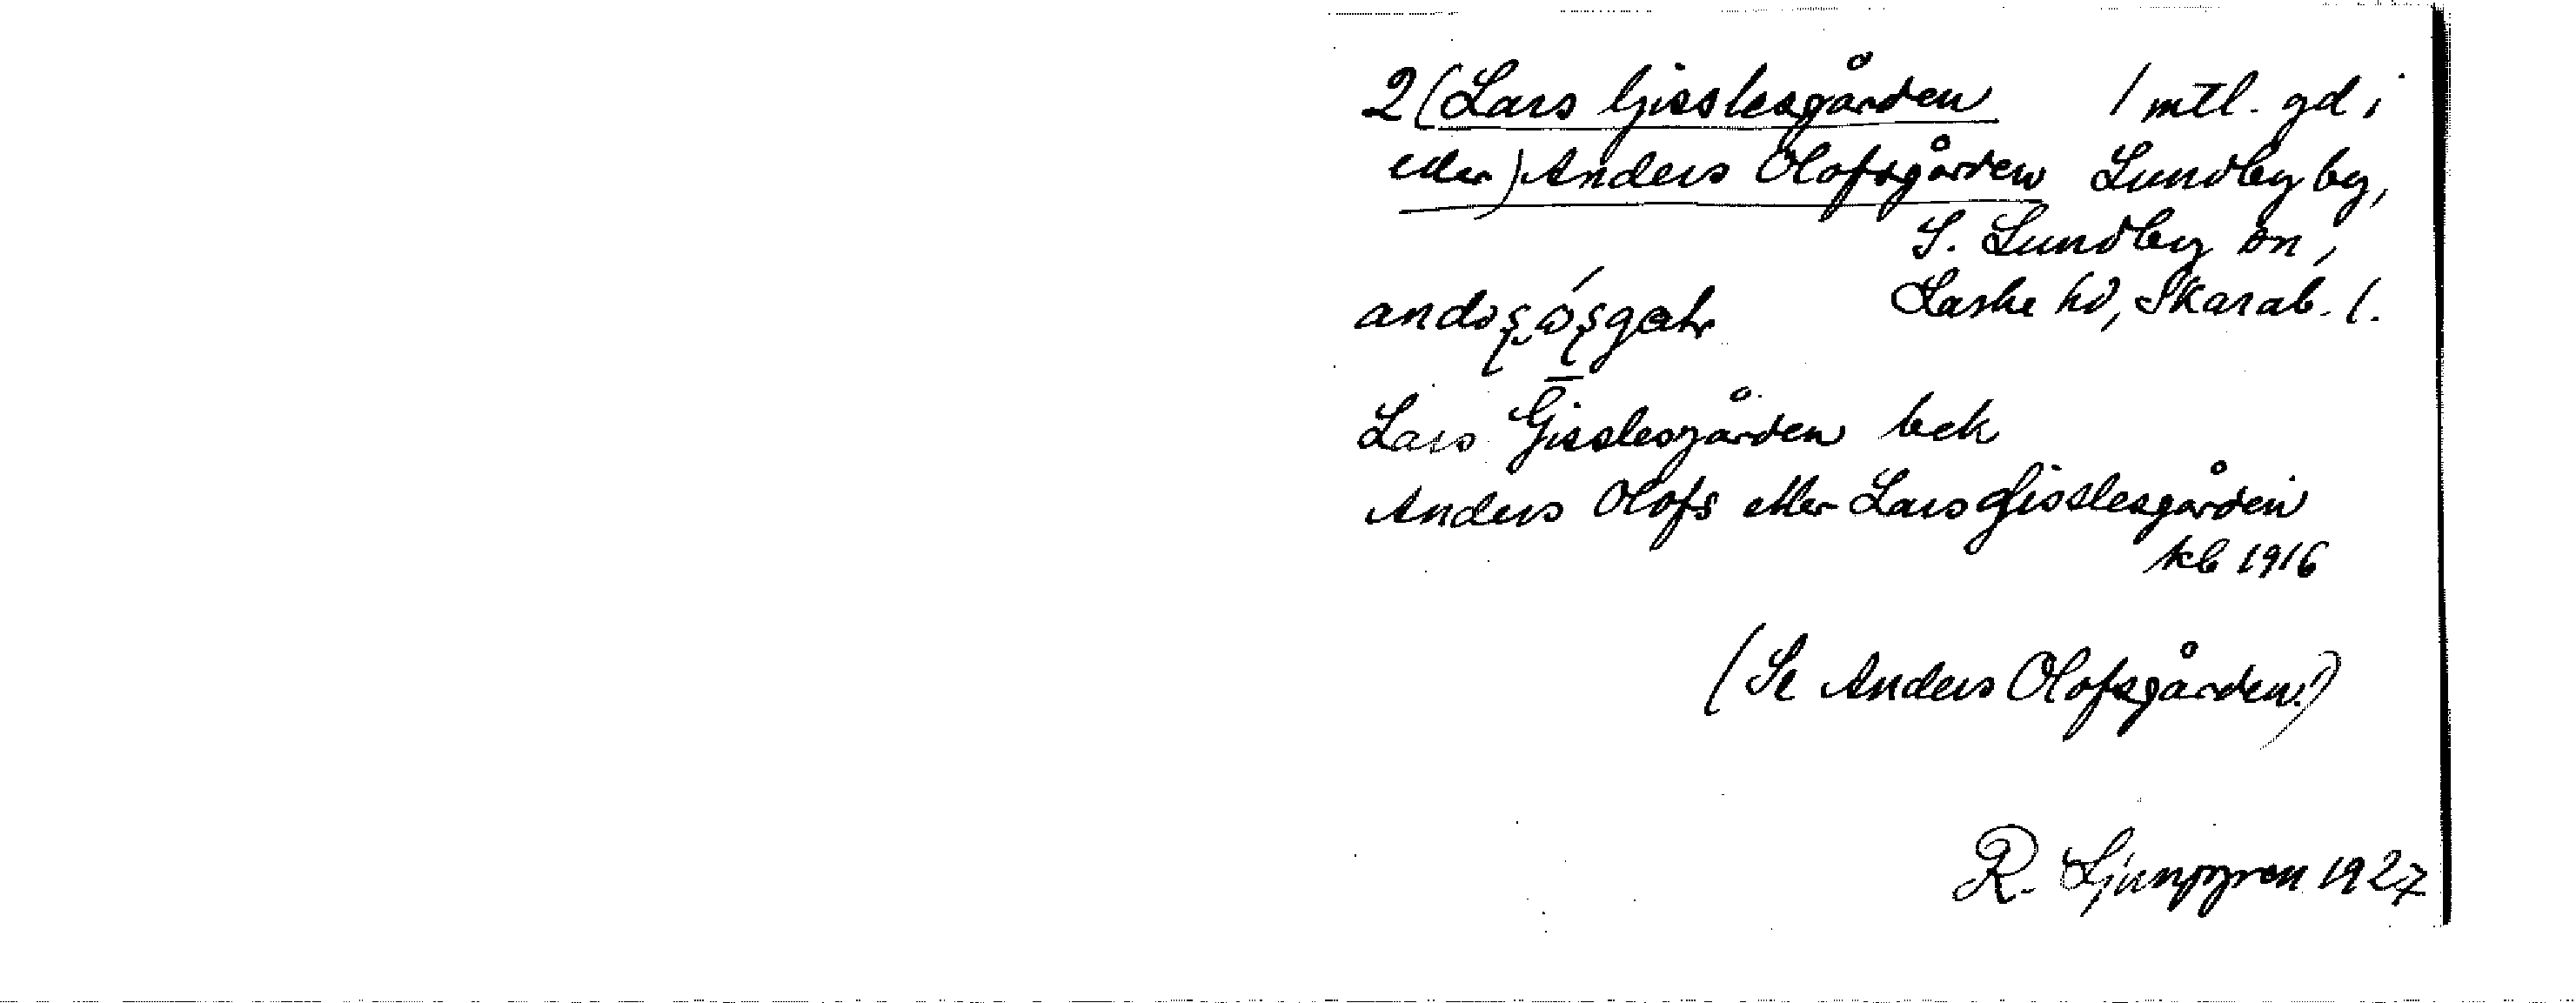 2 (Lars Gisslesgården 1 mtl. gd i
eller) Anders Olofsgården Lundby by,
S. Lundby sn,
Laske hd, Skarab. l.
Lars Gisslesgården bek
Anders Olofs eller Lars Gisslesgården
kb 1916
(Se Anders Olofsgården!)
R. Ljunggren 1927